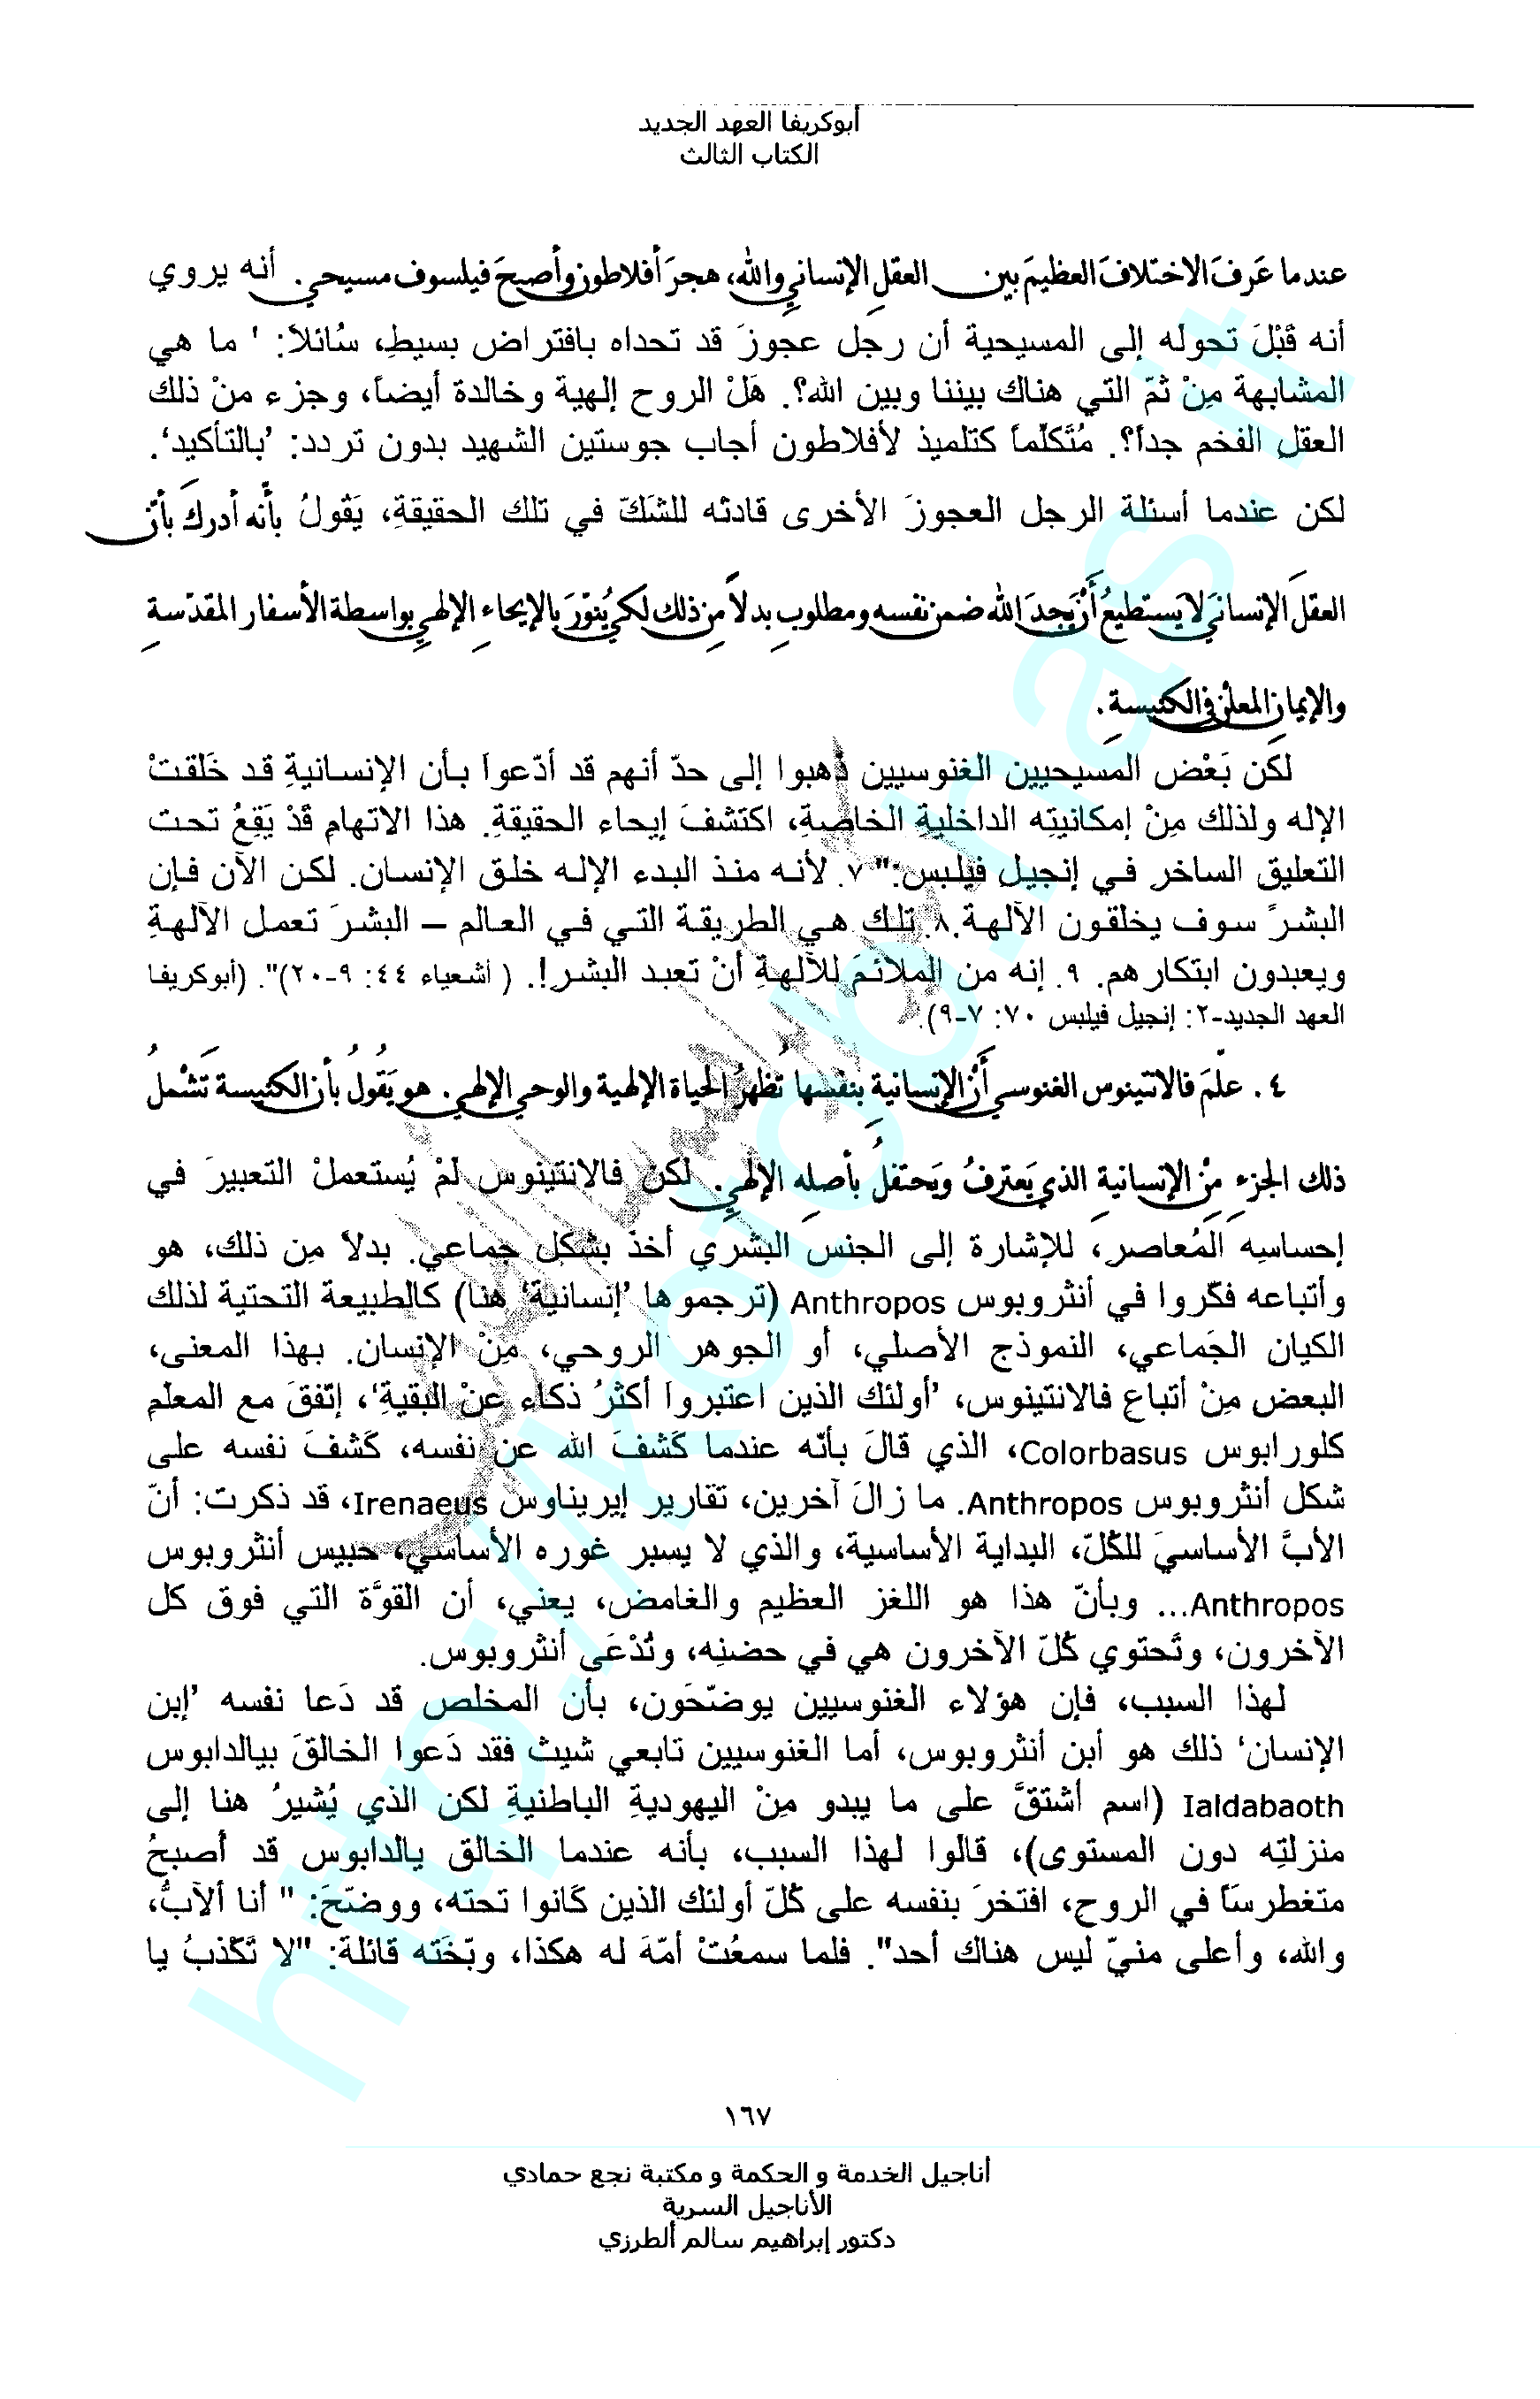 أبوكريفا العهد الجديد
الكتاب الثالث
عندما عَرفَ الاختلافَ العظيمَ بين العقلِ الإنسانيِ والله، هجرَ أفلاطون وأصبحَ فيلسوف مسيحي. أنه يروي
أنه قَبْلَ تحوله إلى المسيحية أن رجل عجوزَ قد تحداه بافتراض بسيطِ، سُائلاً: ' ما هي
المشابهة مِنْ ثمّ التي هناك بيننا وبين الله؟. هَلْ الروح إلهية وخالدة أيضاً، وجزء منْ ذلك
العقل الفخم جداً؟. مُتَكلّماً كتلميذ لأفلاطون أجاب جوستين الشهيد بدون تردد: 'بالتأكيد'.
لكن عندما أسئلة الرجل العجوزَ الأخرى قادتْه للشَكّ في تلك الحقيقةِ، يَقُولُ بأنّه أدركَ بأنّ
العقلَ الإنسانيَ لا يستطيعُ أَنْ يَجِدَ الله ضمن نفسه ومطلوبِ بدلاً من ذلك لكي يُنوّرَ بالإيحاءِ الإلهيِ بواسطة الأسفار المقدّسةِ
والإيمانِ المعلنْ في الكنيسةِ.
لكن بَعْض المسيحيين الغنوسيين ذهبوا إلى حدّ أنهم قد أدّعواَ بأن الإنسانيةِ قد خَلقتْ
الإله ولذلك مِنْ إمكانيتِه الداخليةِ الخاصةِ، اكتشفَ إيحاء الحقيقةِ. هذا الاتهام قَدْ يَقِعُ تحت
التعليق الساخر في إنجيل فيلبس:"٧. لأنه منذ البدء الإله خلق الإنسان. لكن الآن فإن
البشرً سوف يخلقون الآلهة.٨. تلك هي الطريقة التي في العالم – البشرَ تعمل الآلهةِ
ويعبدون ابتكارهم. ٩. إنه من الملائمَ للآلهةِ أنْ تعبد البشر!. ( اشعياء ٤٤: ٩-٢٠)". (أبوكريفا
العهد الجديد-٢: إنجيل فيلبس ٧٠: ٧-٩).
٤. علّمَ فالانتينوس الغنوسي أَنّ الإنسانيةِ بنفسها تُظهرُ الحياة الإلهية والوحي الإلهي. هو يَقُولُ بأن الكنيسة تَشْملُ
ذلك الجزء مِنْ الإنسانيةِ الذي يَعترفُ ويَحتفلُ بأصلِه الإلهيِ. لكن فالانتينوس لَمْ يُستعملْ التعبيرَ في
إحساسِه المُعاصرِ، للإشارة إلى الجنس البشري أخذ بشكل جماعي. بدلاً مِن ذلك، هو
وأتباعه فكّروا في أنثروبوس Anthropos (ترجموها 'إنسانية' هنا) كالطبيعة التحتية لذلك
الكيان الجَماعي، النموذج الأصلي، أو الجوهر الروحي، مِنْ الإنسان. بهذا المعنى،
البعض مِنْ أتباع فالانتينوس، 'أولئك الذين اعتبرواَ أكثرُ ذكاء عنْ البقيةِ'، إتّفقَ مع المعلّم
كلورابوس Colorbasus، الذي قالَ بأنّه عندما كَشفَ الله عن نفسه، كَشفَ نفسه على
شكل أنثروبوس Anthropos. ما زالَ آخرين، تقارير إيريناوس Irenaeus، قد ذكرت: أنّ
الأبَّ الأساسيَ للكُلّ، البداية الأساسية، والذي لا يسبر غوره الأساسي، حبيس أنثروبوس
Anthropos... وبأنّ هذا هو اللغز العظيم والغامض، يعني، أن القوَّة التي فوق كل
الآخرون، وتَحتوي كُلّ الآخرون هي في حضنِه، وتُدْعَى أنثروبوس.
لهذا السبب، فإن هؤلاء الغنوسيين يوضّحَون، بأن المخلص قد دَعا نفسه 'إبن
الإنسان' ذلك هو أبن أنثروبوس، أما الغنوسيين تابعي شيث فقد دَعوا الخالقَ بيالدابوس
Ialdabaoth (اسم أشتقَّ على ما يبدو مِنْ اليهوديةِ الباطنيةِ لكن الذي يُشيرُ هنا إلى
منزلتِه دون المستوى)، قالوا لهذا السبب، بأنه عندما الخالق يالدابوس قد أصبحُ
متغطرسَاً في الروح، افتخرَ بنفسه على كُلّ أولئك الذين كَانوا تحته، ووضّحَ: " أنا ألآبُّ،
والله، وأعلى منيّ ليس هناك أحد". فلما سمعُتْ أمّهَ له هكذا، وبّخَته قائلة: "لا تَكْذبُ يا
١٦٧
أناجيل الخدمة و الحكمة و مكتبة نجع حمادي
الأناجيل السرية
دكتور إبراهيم سالم ألطرزي
http://kotob.has.it